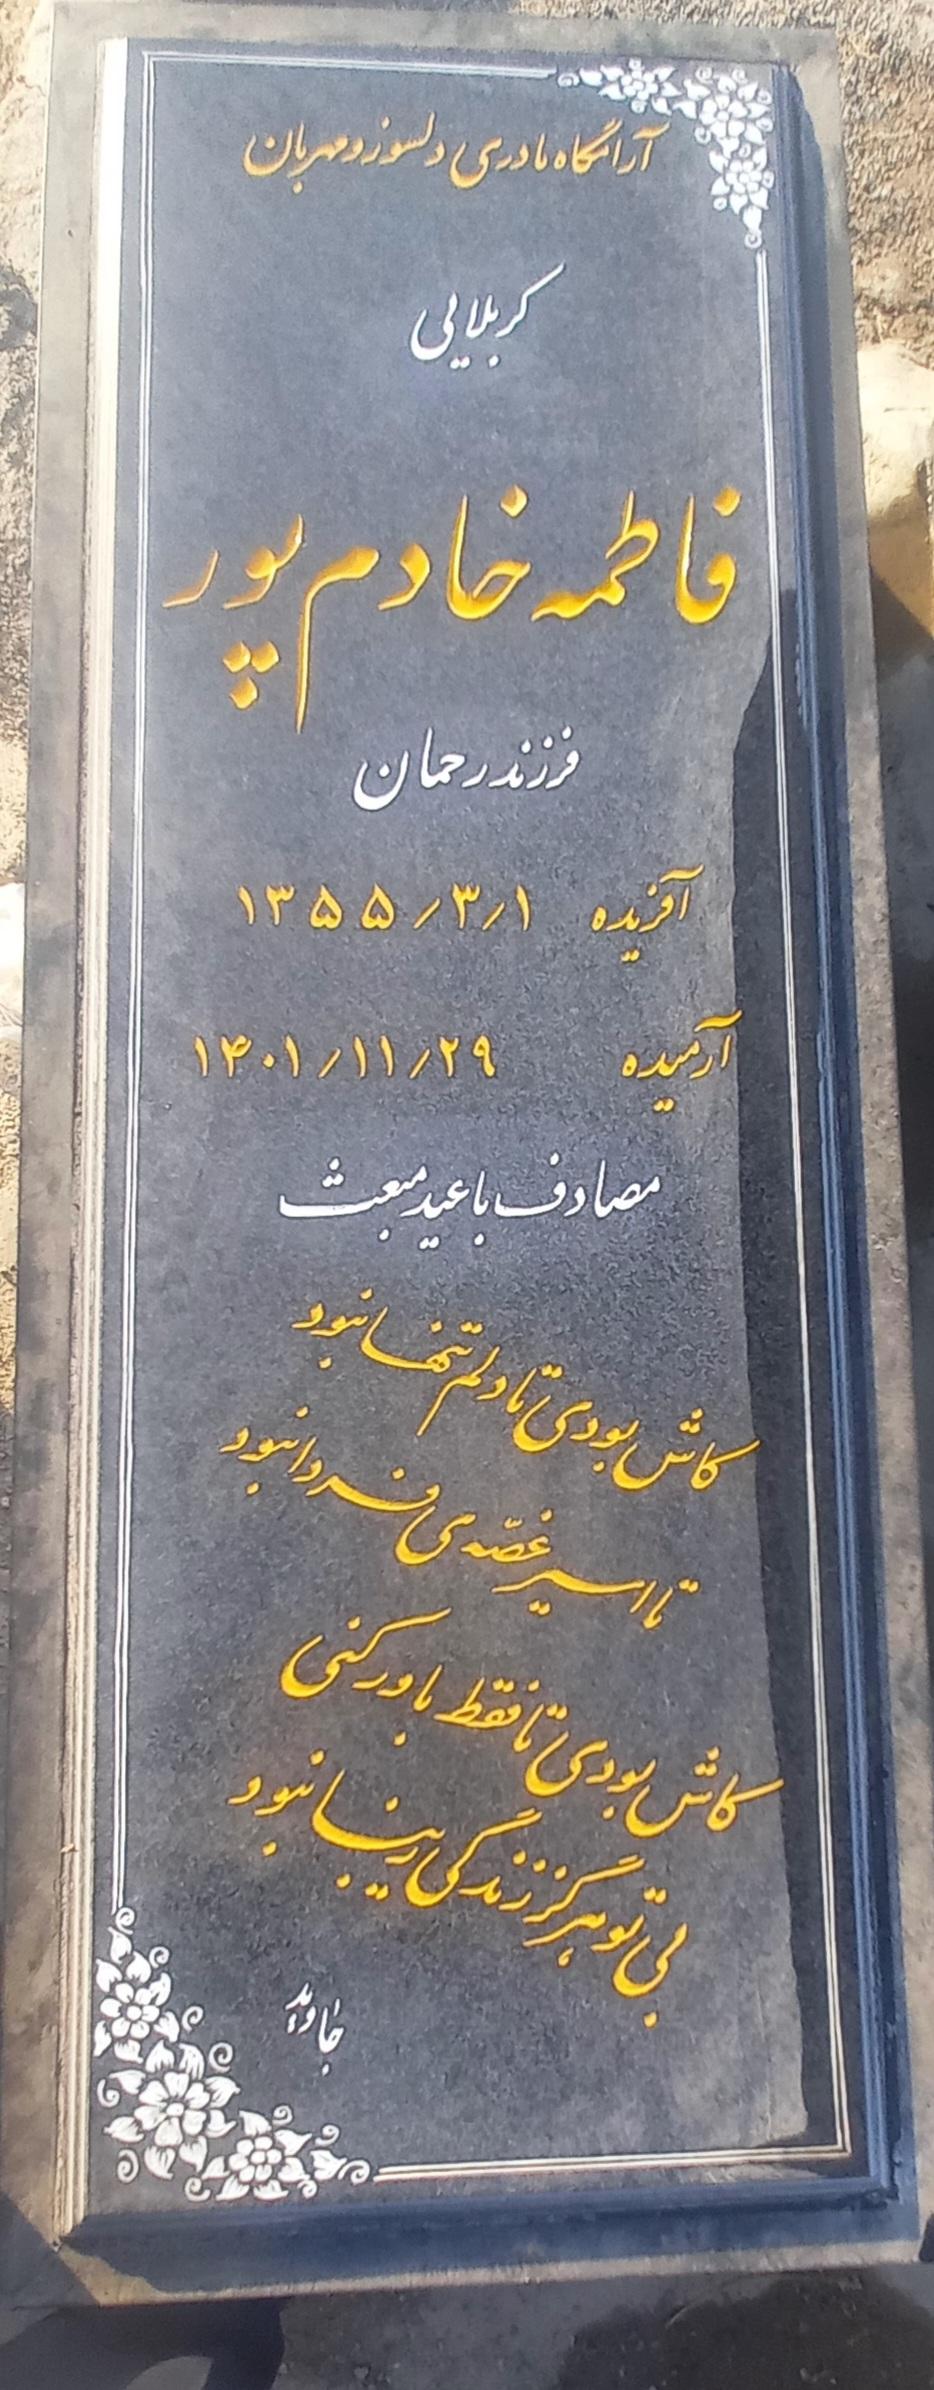 آرامگاه مادری دلسوز و مهربان
کربلایی
فاطمه خادم پور
فرزند رحمان
آفریده ۱۳۵۵/۳/۱
آرمیده ۱۴۰۱/۱۱/۲۹
مصادف با عید مبعث
کاش بودی تا دلم تنها نبود
تا اسیر غصّه ی فردا نبود
کاش بودی تا فقط باور کنی
بی تو هرگز زندگی زیبا نبود
جاوید